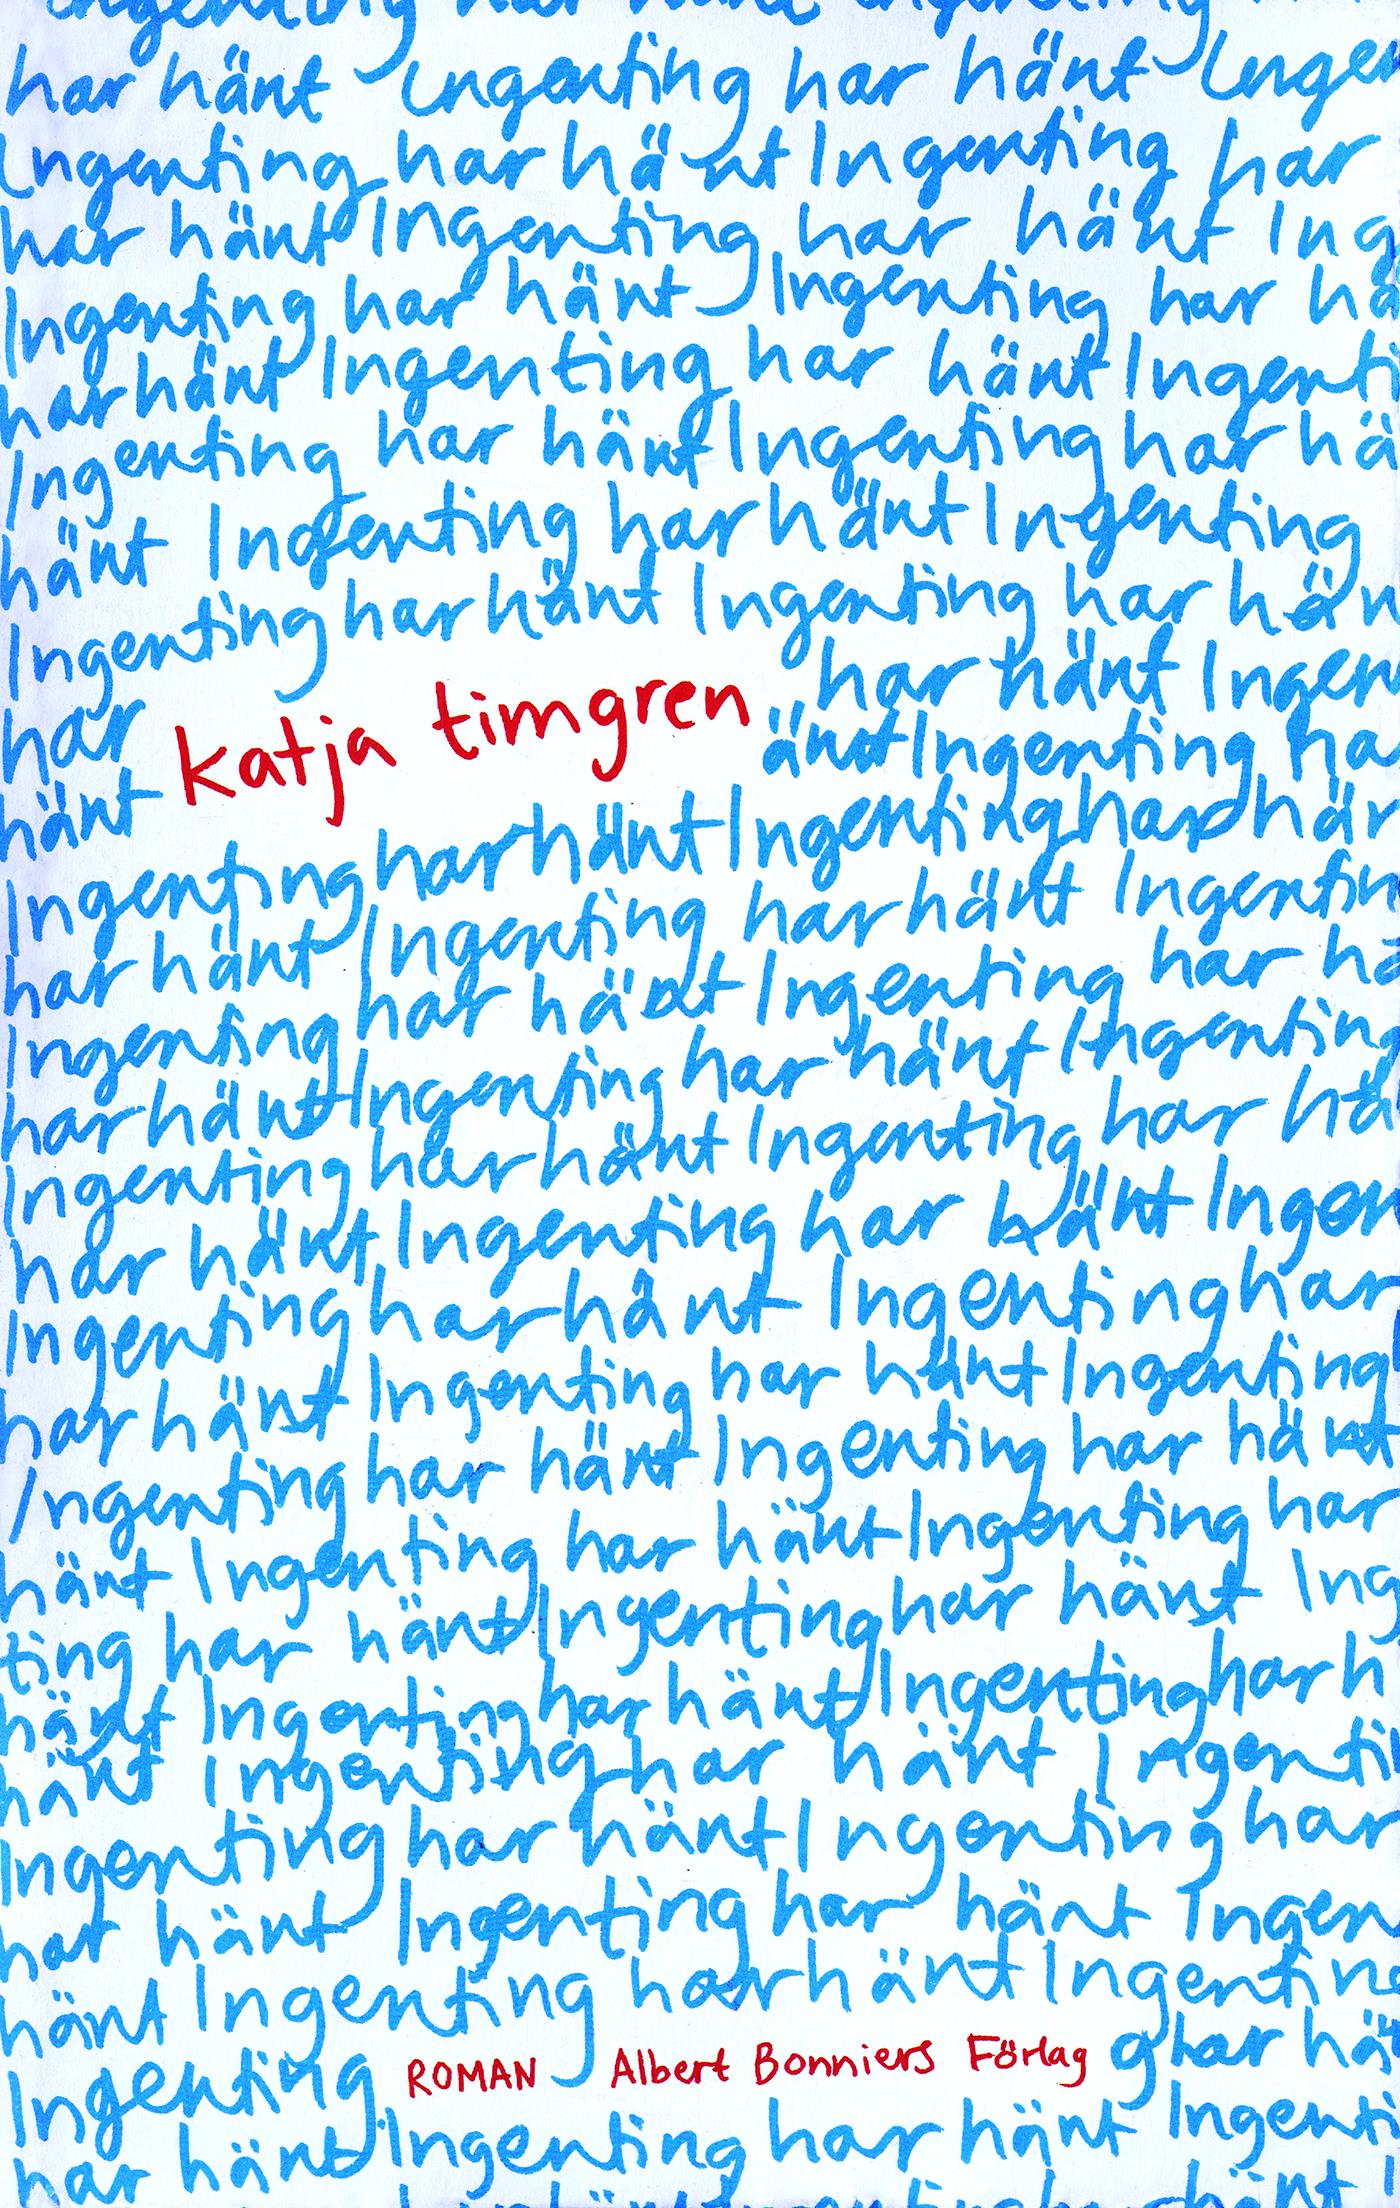 Ingenting har hänt Ingenting
har hänt Ingenting har hänt Ingen
Ingenting har hänt Ingenting har
har hänt Ingenting har hänt Ing
Ingenting har hänt Ingenting har hä
har hänt Ingenting har hänt Ingenti
Ingenting har hänt Ingenting har hä
hänt Ingenting har hänt Ingenting
Ingenting har hänt Ingenting har hän
har hänt Ingen
har katja timgren änt Ingenting ha
hänt
Ingenting har hänt Ingenting har hän
har hänt Ingenting har hänt Ingentin
Ingenting har hänt Ingenting har hä
har hänt Ingenting har hänt Ingenting
Ingenting har hänt Ingenting har hä
har hänt Ingenting har hänt Ingen
Ingenting har hänt Ingenting har
har hänt Ingenting har hänt Ingenting
Ingenting har hänt Ingenting har hänt
hänt Ingenting har hänt Ingenting har
ting har hänt Ingenting har hänt Ing
hänt Ingenting har hänt Ingenting har h
hänt Ingenting har hänt Ingenti
Ingenting har hänt Ingenting har
har hänt Ingenting har hänt Ingen
hänt Ingenting har hänt Ingenting
Ingenting ROMAN Albert Bonniers Förlag g har hä
har hänt Ingenting har hänt Ingenti